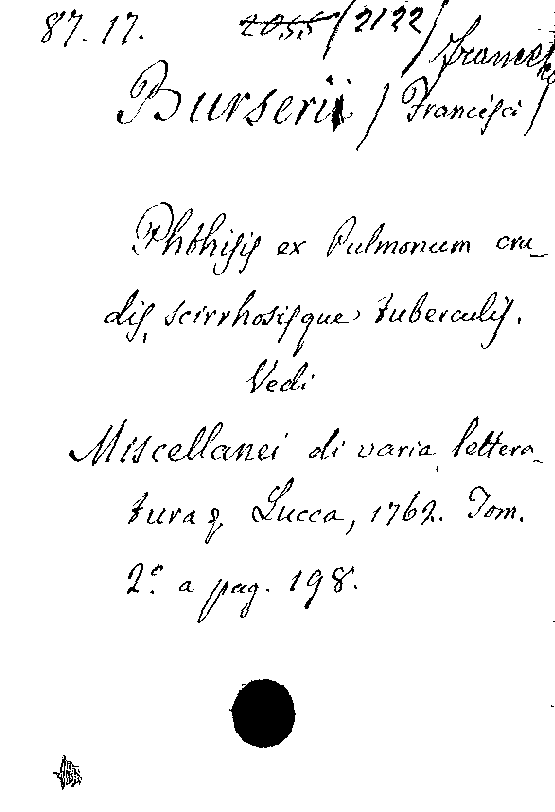 87.17. 2055 (2122)
Francesco
Burserii (Francisci)
Phthisis ex Pulmonum cru_
dis, scirrhosisque tuberculis.
Vedi
Miscellanei di varia lettera_
tura & Lucca, 1762. Tom.
2.º a pag. 198.